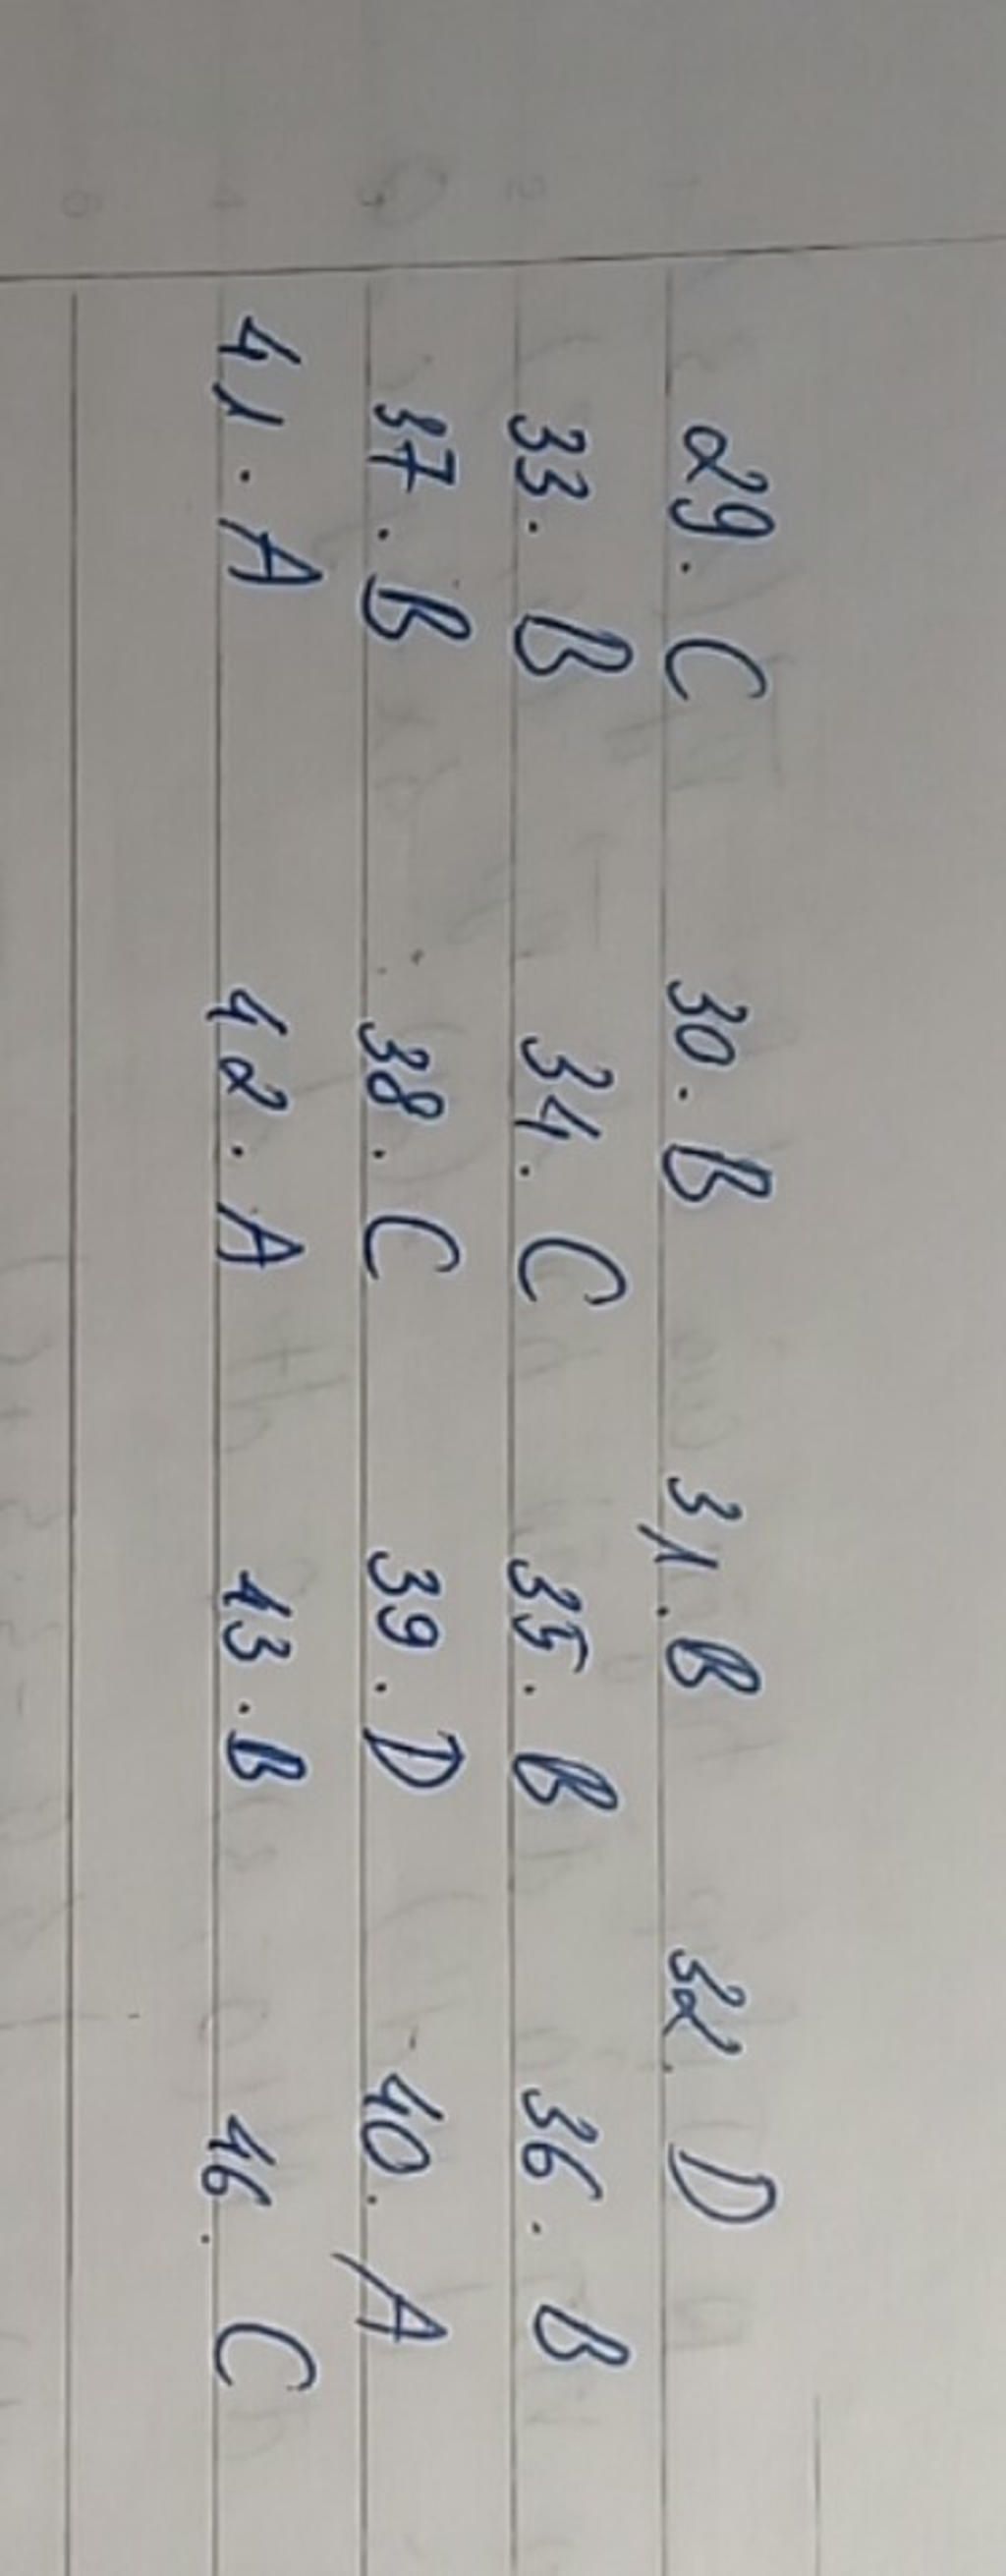 29. C 30. B 31. B 32. D
33. B 34. C 35. B 36. B
37. B 38. C 39. D 40. A
41. A 42. A 43. B 46. C